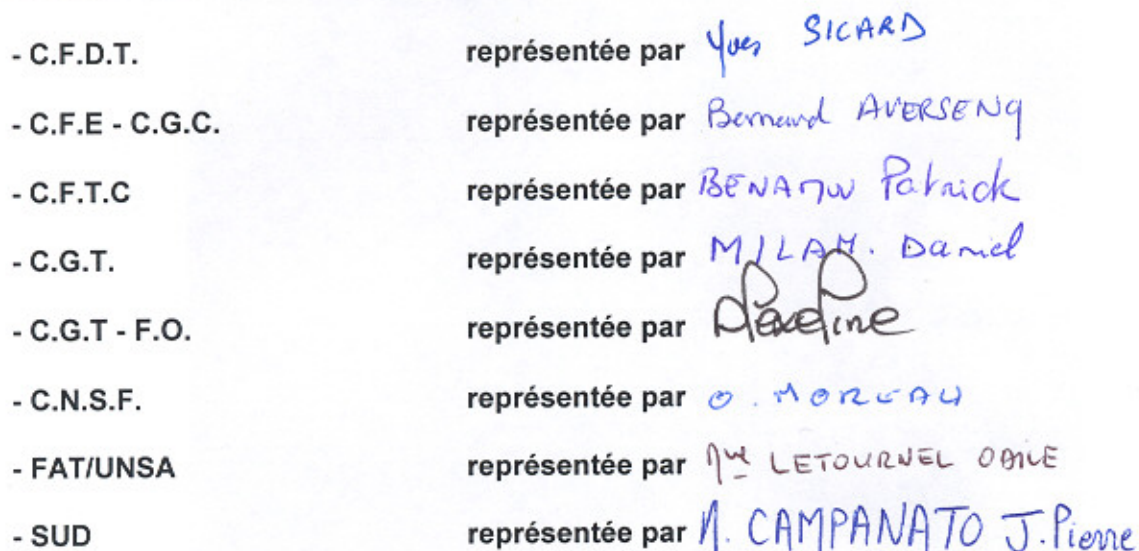 - C.F.D.T. représentée par Yves SICARD
- C.F.E - C.G.C. représentée par Bernard AVERSENQ
- C.F.T.C représentée par Patrick
- C.G.T. représentée par MILAH. Daniel
- C.G.T - F.O. représentée par
- C.N.S.F. représentée par O. MOREAU
- FAT/UNSA représentée par Mme LETOURNEL ODILE
- SUD représentée par M. CAMPANATO J.Pierre